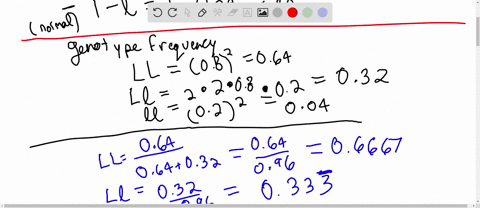 (normal) 1 - l =
genotype frequency
LL = (0.8)² = 0.64
Ll = 2 • 2 • 0.8 • 0.2 = 0.32
ll = (0.2)² = 0.04
LL = 0.64 / 0.64 + 0.32 = 0.64 / 0.96 = 0.6667
Ll = 0.32 / 0.96 = 0.333